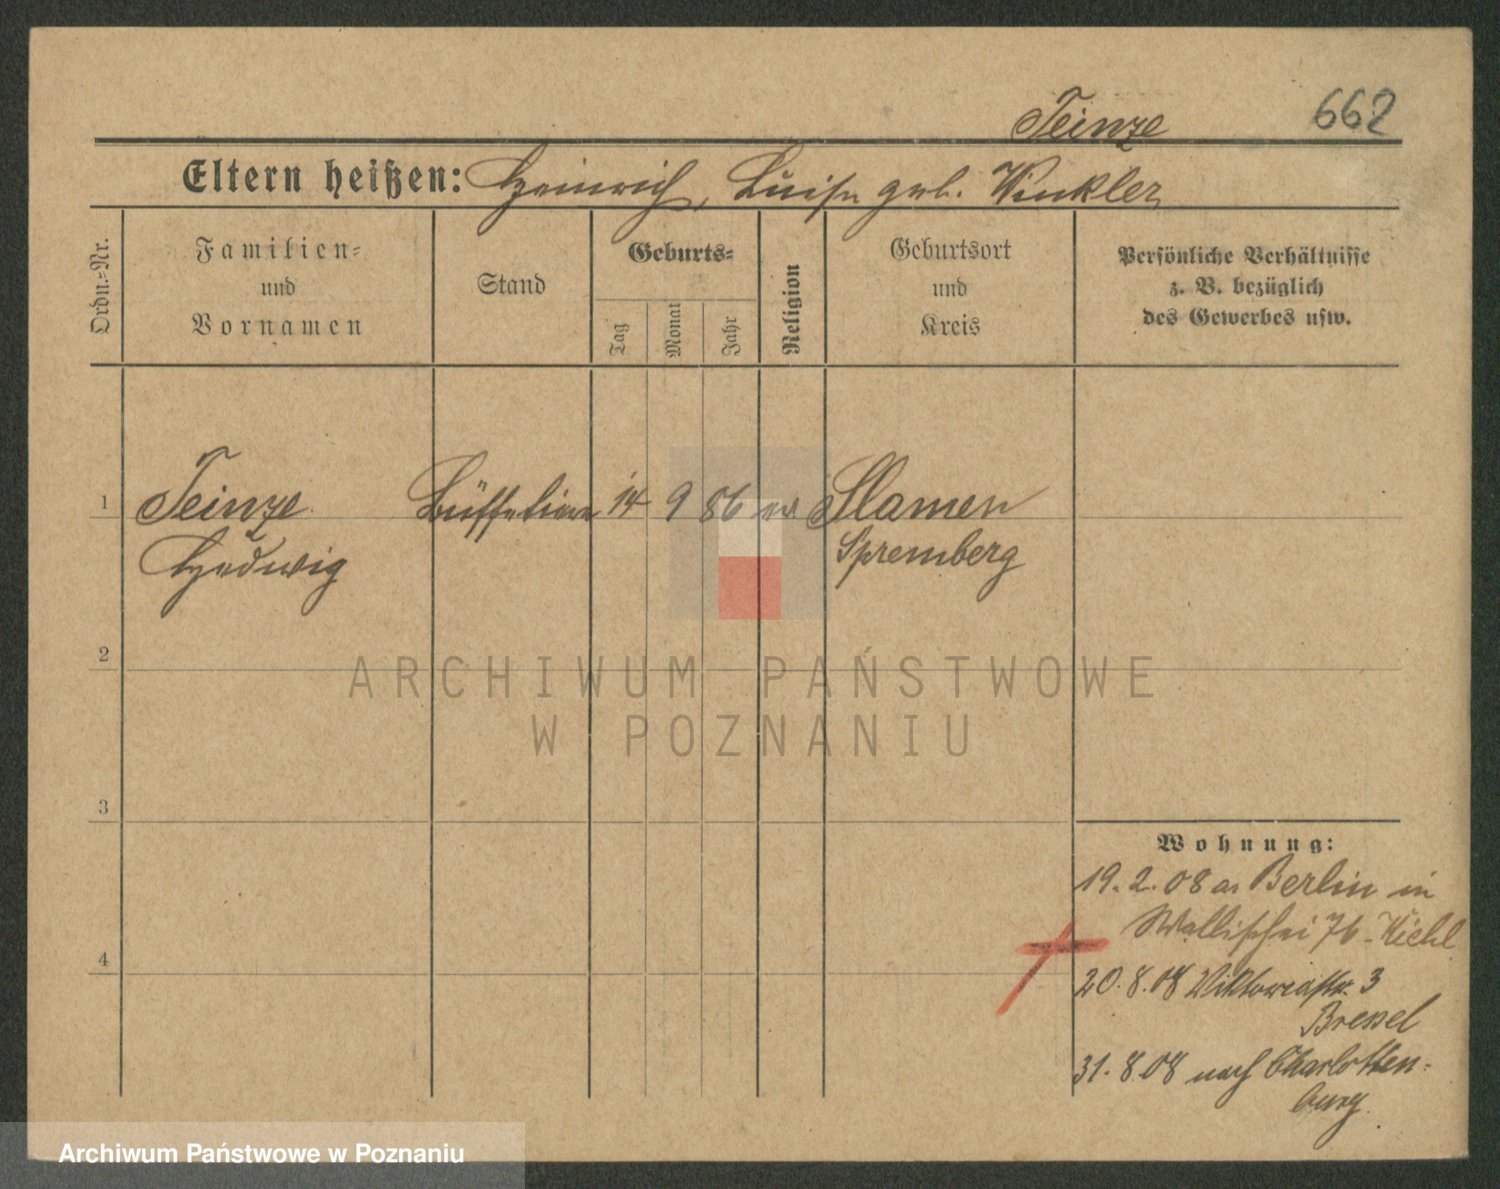 Teinze 662
Eltern heißen: Heinrich, Luise geb. Winkler
Ordn.-Nr.
Familien-
und
Vornamen
Stand
Geburts-
Tag
Monat
Jahr
Religion
Geburtsort
und
Kreis
Persönliche Verhältnisse
z. B. bezüglich
des Gewerbes usw.
1 Teinze Büffetiere 14 9 86 ev Slamen
Hedwig Spremberg
2
3
4
Wohnung:
19.2.08 a. Berlin in
Wallischei 76 - Kiehl
20.8.08 Viktoriastr. 3
Bressel
31.8.08 nach Charlotten-
burg.
ARCHIWUM PAŃSTWOWE
W POZNANIU
Archiwum Państwowe w Poznaniu